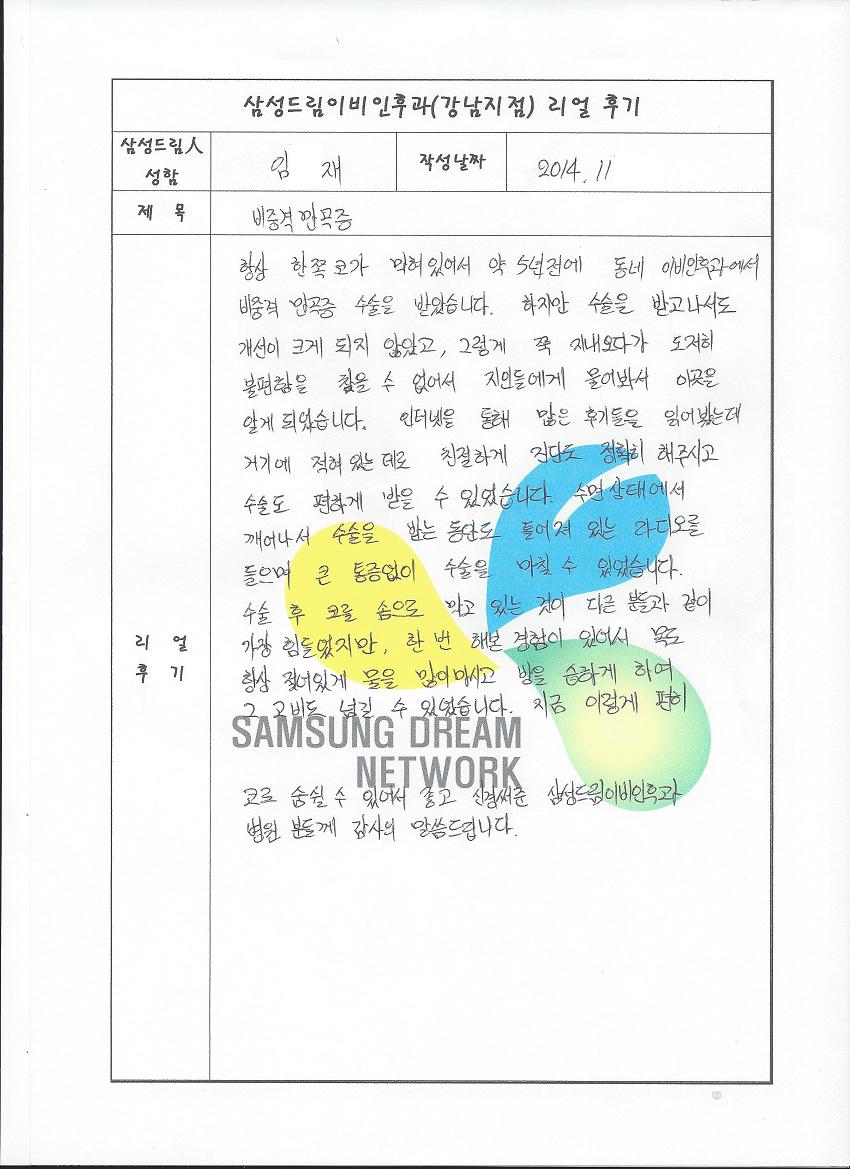 삼성드림이비인후과(강남지점) 리얼 후기
삼성드림人
성함
임 재
작성날짜
2014. 11
제 목
비중격 만곡증
항상 한쪽 코가 막혀있어서 약 5년전에 동네 이비인후과에서
비중격 만곡증 수술을 받았습니다. 하지만 수술을 받고나서도
개선이 크게 되지 않았고, 그렇게 쭉 지내오다가 도저히
불편함을 참을 수 없어서 지인들에게 물어봐서 이곳을
알게 되었습니다. 인터넷을 통해 많은 후기들을 읽어봤는데
거기에 적혀 있는 데로 친절하게 진단도 정확히 해주시고
수술도 편하게 받을 수 있었습니다. 수면상태에서
깨어나서 수술을 받는 동안도 틀어져 있는 라디오를
들으며 큰 통증없이 수술을 마칠 수 있었습니다.
수술 후 코를 솜으로 막고 있는 것이 다른 분들과 같이
가장 힘들었지만, 한 번 해본 경험이 있어서 목도
항상 젖어있게 물을 많이 마시고 방을 습하게 하여
그 고비도 넘길 수 있었습니다. 지금 이렇게 편히
리 얼
후 기
SAMSUNG DREAM
NETWORK
코로 숨쉴 수 있어서 좋고 신경써준 삼성드림이비인후과
병원 분들께 감사의 말씀드립니다.